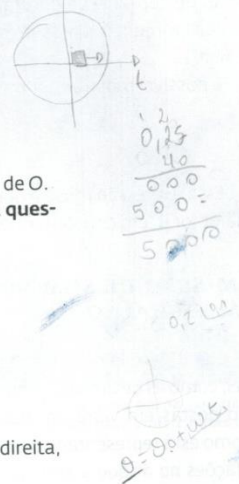 t
1 2
0,25
40
000
500=
5000
de O.
ques-
0,2
direita,
θ=θo+ωt